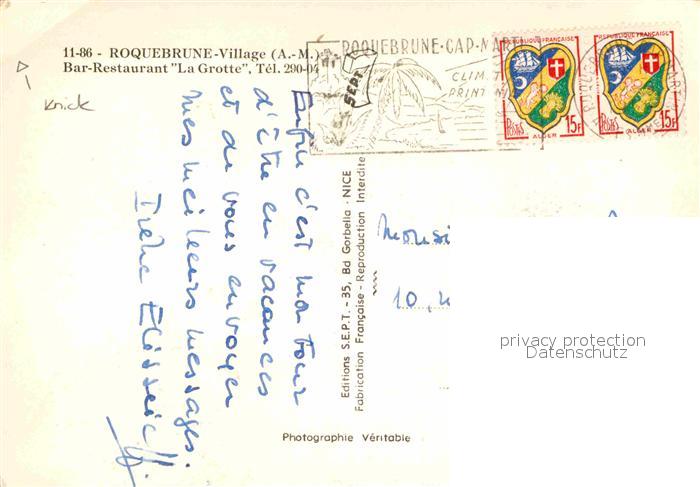 11-86 - ROQUEBRUNE-Village (A.-M.)
Bar-Restaurant "La Grotte", Tél. 290-04
Knick
ROQUEBRUNE-CAP-MARTI
CLIM
PRINT
SEPT
REPUBLIQUE FRANÇAISE
POSTES
ALGER
15F
REPUBLIQUE FRANÇAISE
POSTES
ALGER
15F
Enfin c'est mon tour
d'être en vacances
et de vous envoyer
mes meilleurs messages.
Irène
Editions S.E.P.T. - 35, Bd Gorbella - NICE
Fabrication Française - Reproduction Interdite
Monsi
10,
privacy protection
Datenschutz
Photographie Véritable